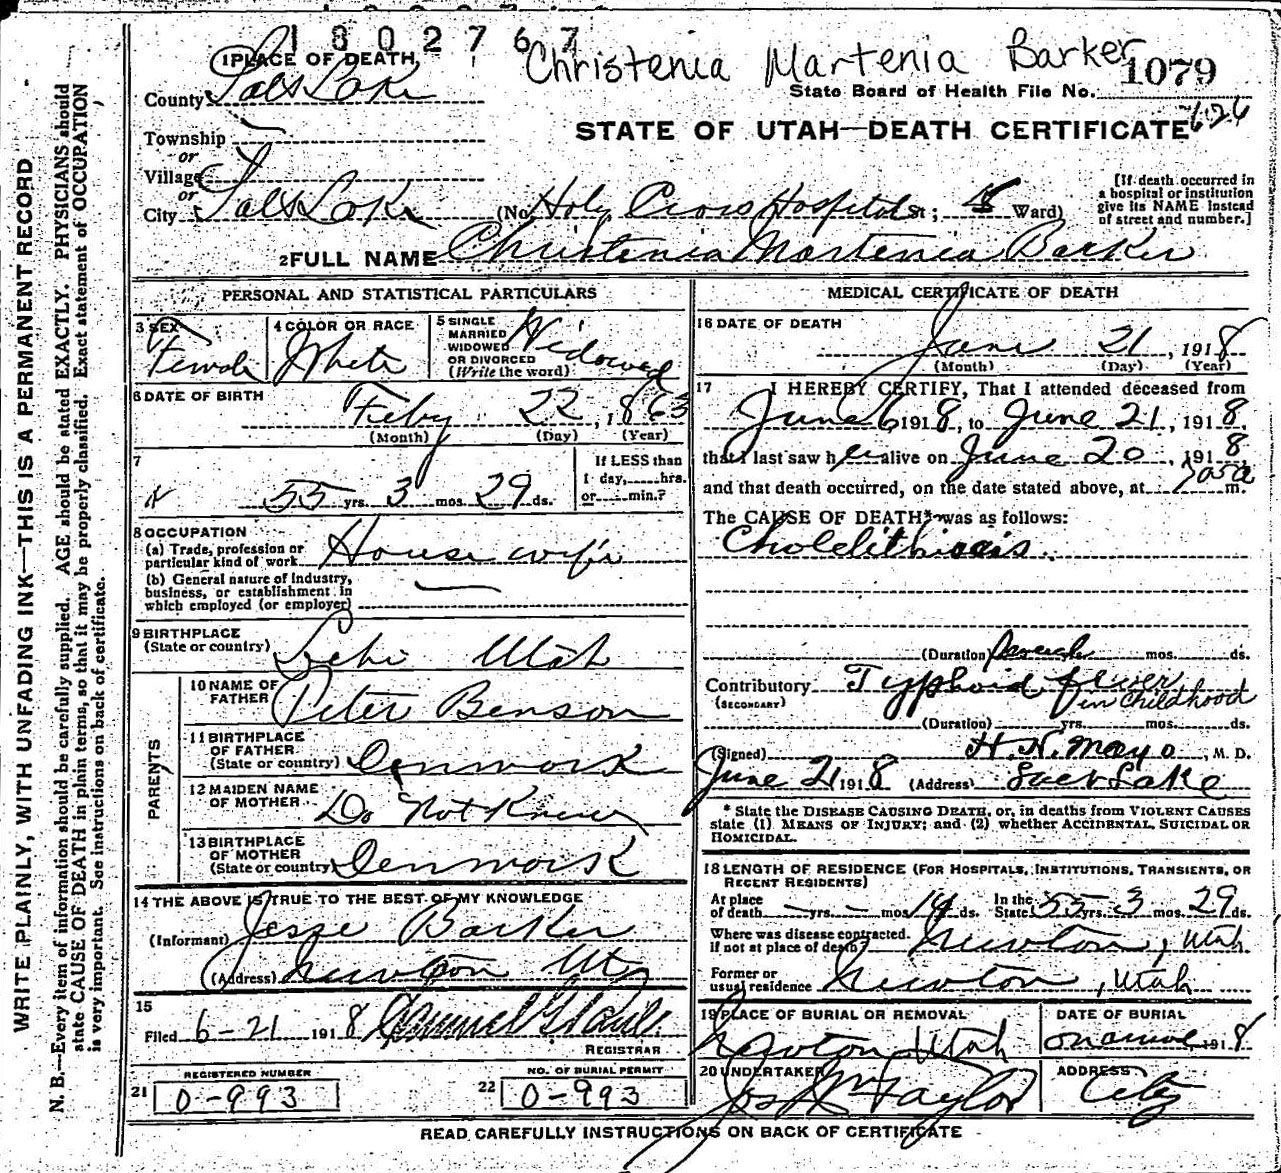 1802767
Christenia Martenia Barker
1 PLACE OF DEATH
1079
County Salt Lake
State Board of Health File No.
626
Township
STATE OF UTAH—DEATH CERTIFICATE
or
Village
or
City Salt Lake (No. Holy Cross Hospital St; Ward)
[If death occurred in
a hospital or institution
give its NAME instead
of street and number.]
2 FULL NAME Christenia Martenia Barker
PERSONAL AND STATISTICAL PARTICULARS
3 SEX
Female
4 COLOR OR RACE
White
5 SINGLE
MARRIED
WIDOWED
OR DIVORCED
(Write the word)
Widowed
6 DATE OF BIRTH
Feby 22, 1863
(Month) (Day) (Year)
7
55 yrs. 3 mos. 29 ds.
If LESS than
1 day, hrs.
or min.?
8 OCCUPATION
(a) Trade, profession or
particular kind of work House wife
(b) General nature of industry,
business, or establishment in
which employed (or employer)
9 BIRTHPLACE
(State or country) Lehi Utah
PARENTS
10 NAME OF
FATHER Peter Benson
11 BIRTHPLACE
OF FATHER
(State or country) Denmark
12 MAIDEN NAME
OF MOTHER Do Not Know
13 BIRTHPLACE
OF MOTHER
(State or country) Denmark
14 THE ABOVE IS TRUE TO THE BEST OF MY KNOWLEDGE
(Informant) Jesse Barker
(Address) Newton Utah
15
Filed 6-21 1918
REGISTRAR
REGISTERED NUMBER
21 0-993
NO. OF BURIAL PERMIT
22 0-993
MEDICAL CERTIFICATE OF DEATH
16 DATE OF DEATH
June 21, 1918
(Month) (Day) (Year)
17 I HEREBY CERTIFY, That I attended deceased from
June 6 1918, to June 21, 1918,
that I last saw her alive on June 20, 1918
and that death occurred, on the date stated above, at 705a m.
The CAUSE OF DEATH* was as follows:
Cholelithiasis.
(Duration) mos. ds.
Contributory Typhoid fever
(SECONDARY) in childhood
(Duration) yrs. mos. ds.
(Signed) H. N. Mayo, M. D.
June 21 1918 (Address) Salt Lake
* State the DISEASE CAUSING DEATH, or, in deaths from VIOLENT CAUSES
state (1) MEANS OF INJURY; and (2) whether ACCIDENTAL, SUICIDAL OR
HOMICIDAL.
18 LENGTH OF RESIDENCE (FOR HOSPITALS, INSTITUTIONS, TRANSIENTS, OR
RECENT RESIDENTS)
At place
of death — yrs. — mos. 14 ds.
In the
State 55 yrs. 3 mos. 29 ds.
Where was disease contracted.
if not at place of death? Newton, Utah
Former or
usual residence Newton, Utah
19 PLACE OF BURIAL OR REMOVAL
Newton Utah
DATE OF BURIAL
1918
20 UNDERTAKER
Jos Wm Taylor
ADDRESS
City
READ CAREFULLY INSTRUCTIONS ON BACK OF CERTIFICATE
WRITE PLAINLY, WITH UNFADING INK—THIS IS A PERMANENT RECORD
N. B.—Every item of information should be carefully supplied. AGE should be stated EXACTLY. PHYSICIANS should
state CAUSE OF DEATH in plain terms, so that it may be properly classified. Exact statement of OCCUPATION
is very important. See instructions on back of certificate.